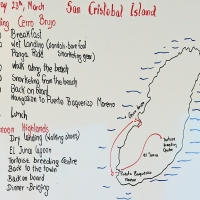 San Cristobal Island
23rd, March
Cerro Brujo
Breakfast
Wet Landing (Sandals-bare foot
Panga Ride Snorkeling gear)
Walk along the beach
Snorkeling from the beach
Back on board
Navigation to Puerto Baquerizo Moreno
Lunch
Highlands
Dry Landing (Walking shoes)
El Junco lagoon
Tortoise breeding Centre
Back to the town
Back on board
Dinner - Briefing
Cerro Brujo
Tortoise
breeding
Center
El Junco
Puerto Baquerizo
Moreno